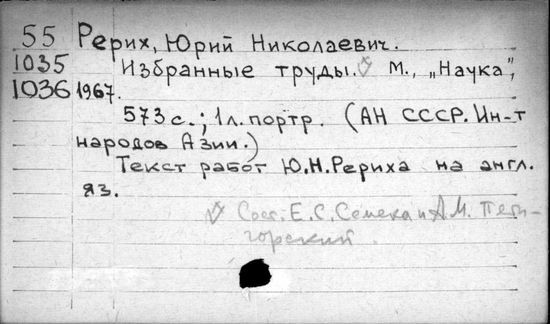 55 Рерих, Юрий Николаевич.
1035 Избранные труды. М., „Наука",
1036 1967.
573 с.; 1 л. портр. (АН СССР. Ин-т
народов Азии.)
Текст работ Ю.Н. Рериха на англ.
яз.
Сост. Е. С. Семека и А. М. Пяти-
горский.